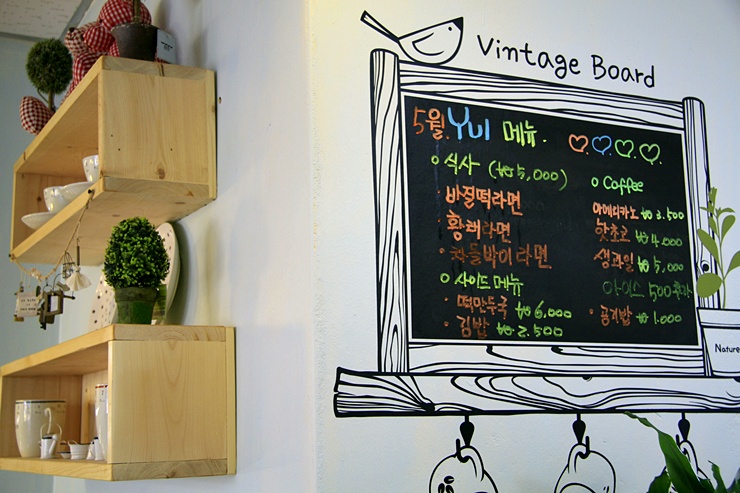 Vintage Board
5월. Yul 메뉴.
○ 식사 (₩5,000)
· 바질떡라면
· 황태라면
· 차돌박이라면
○ 사이드메뉴
· 떡만두국 ₩6,000
· 김밥 ₩2,500
○ Coffee
아메리카노 ₩3.500
핫초코 ₩4,000
생과일 ₩5,000
아이스 500추가
· 공기밥 ₩1.000
Nature